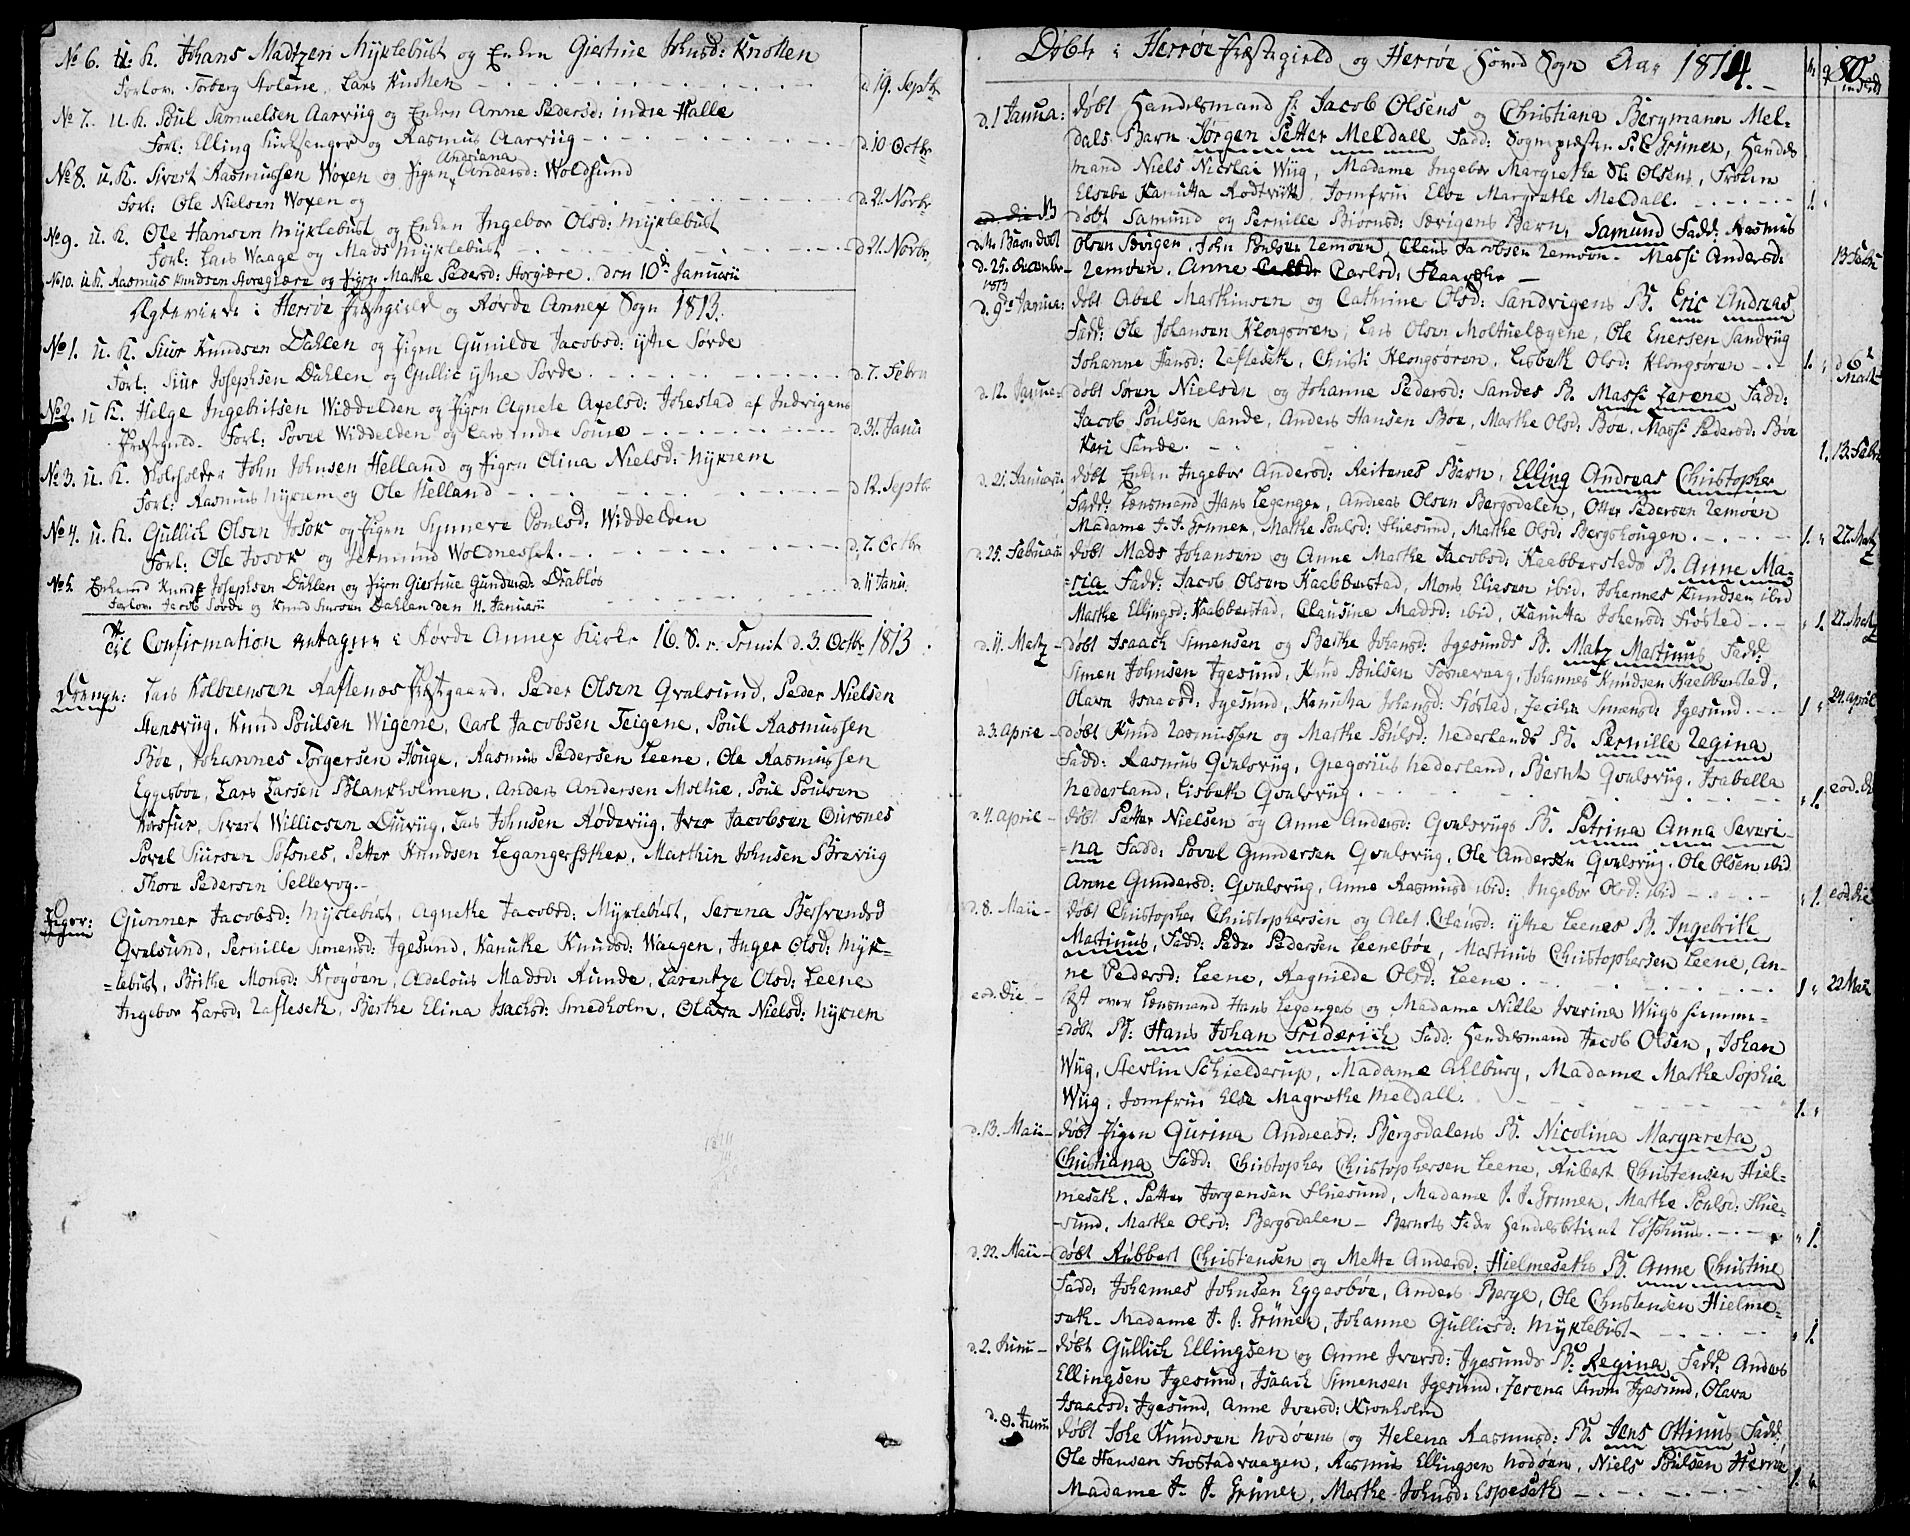 No 6. U. K. Johans Madtzen Myklebust og Enken Giertrue Johnsd: Knotten
Forlov. Torberg Stolene, Lars Knotten - d. 19. Septbr
No 7. U. K. Poul Samuelsen Aarviig og Enken Anne Pedersd: indre Halle
Forl: Elling Kirksenger og Rasmus Aarviig - d. 10 Octbr
No 8. U. K. Sivert Rasmussen Woxen og Pigen Andriana Andersd: Woldsund
Forl: Ole Nielsen Woxen og - d. 21. Novbr
No 9. U. K. Ole Hansen Myklebust og Enken Ingebor Olsd: Myklebust
Forl: Lars Waage og Mads Myklebust - d. 21. Novbr.
No 10. U. K. Rasmus Knudsen og Pigen Marthe Pedersd: den 10de Januarii
Egteviede i Herrøe Præstegield og Røvde Annex Sogn 1813.
No 1. U. K. Siur Knudsen Dahlen og Pigen Gunilde Jacobsd: ystre Sørde
Forl: Siur Josephsen Dahlen og Gullic ystre Sørde - d. 7. Febru
No 2. U. K. Helge Ingebritsen Widdelden og Pigen Agnete Axelsd: Jøhestad af Indvigens
Præstegield. Forl: Povel Widdelden og Lars indre - d. 31. Janu
No 3. U. K. Skoleholder John Johnsen Helland og Pigen Olina Nielsd: Nykrem
Forl: Rasmus Nykrem og Ole Helland - d. 12. Septbr
No 4. U. K. Gullich Olsen Josok og Pigen Synneve Poulsd: Widdelden
Forl: Ole Josok og Jetmund Woldnesset. - d. 7. Octbr
No 5. Enkemd Knud Josephsen Dahlen og Pigen Giertrue Gundersd: Diabløs d. 11 Janu:
Forlov. Jacob Sørde og Knud Siursen Dahlen den 11. Januarii
Til Confirmation antagne i Røvde Annex Kirke 16. S. e. Trinit d. 3. Octbr 1813.
Drenge: Lars Kolbeensen Raftenæs Præstgaard, Peder Olsen Qvalsund, Peder Nielsen
Hensviig, Knud Poulsen Wigene, Carl Jacobsen Teigene, Poul Rasmussen
Bøe, Johannes Torgersen Houge, Rasmus Pedersen Leene, Ole Rasmussen
Eggesbøe, Lars Larsen Blankholmen, Anders Andersen Moltue, Poul Poulsen
Sivert Willicsen Diuviig, Lars Johnsen Rødeviig, Iver Jacobsen
Povel Siursen Søfsnes, Petter Knudsen Legangersæther, Marthin Johnsen Breviig
Thore Pedersen Sellevog.-
Piger: Gunner Jacobsd: Myklebust, Agnethe Jacobsd: Myklebust, Serena
Qvalsund, Pernille Simensd: Igesund, Kanutte Knudsd: Waagen, Inger Olsd: Myk-
-lebust, Brithe Monsd: Krogøen, Adelous Madsd: Runde, Larentze Olsd: Leene
Ingebor Larsd: Lafleseth, Berthe Elina Isachsd: Smedholm, Olava Nielsd: Nykrem
Døbte i Herrøe Præstegield og Herrøe Hoved Sogn Aar 1814.
d. 1 Janua: døbt Handelsmand Sr. Jacob Olsens og Christiana Bergmann Mel-
dals Barn Jørgen Petter Meldall Fadd: Sognepræsten P. C. Gruner, Handels
mand Niels Nicolai Wiig, Madame Ingebor Margrethe Sl: Olsens, Frøken
Elsebe Kanutta Rodtvitt, Jomfrue Else Margrethe Meldall. - 1.
døbt Samund og Pernille Biørnsd: Sævigens Barn, Samund Fadd: Rasmus
d. 25. Decembr 1813 Olsen Sævigen, John Poulsen Remøen, Claus Jacobsen Remøen - Massi Andersd: 13 Febru
Remøen. Anne Carlsd: Flaavær -
d. 9de Janua: døbt Abel Marthinsen og Cathrine Olsd: Sandvigens B. Eric Andreas
Fadd: Ole Johansen Klongsøren, Lars Olsen Moltuelægene, Ole Enersen Sandviig
Johanne Jansd: Lafleseth, Christi Klongsøren, Lisbeth Olsd: Klongsøren - 1. d. 6te Marti
d. 12. Janua- døbt Søren Nielsen og Johanne Pedersd: Sandes B. Massi Serene Fadd:
Jacob Poulsen Sande, Anders Hansen Bøe, Marthe Olsd: Bøe. Massi Pedersd: Bøe
Kari Sande. 1. 13. Febr
d. 21. Januarii døbt Enken Ingebor Andersd: Reitenes Barn, Elling Andreas Christopher
Fadd: Lensmand Hans Leganger, Andreas Olsen Bergsdalen, Otter Pedersen Remøen
Madame J. J. Gruner, Marthe Poulsd: Fluesund, Marthe Olsd: Bergshougen. - 1. 27. Martz
d. 25. Februarii døbt Mads Johansen og Anne Marthe Jacobsd: Kaabberstads B. Anne Ma-
-ria Fadd: Jacob Olsen Kaabberstad, Mons Eliesen ibid, Johannes Knudsen ibid
Marthe Ellingsd: Kaabberstad, Clausine Madsd: ibid, Kanutta Johansd: Frøsted - 1. 27. Martz
d. 11. Martz - døbt Isaach Simensen og Berthe Johansd: Igesunds B. Matz Martinus Fadd:
Simen Johnsen Igesund, Knud Poulsen Tøsnevaag, Johannes Knudsen Kaabberstad,
Olava Isaacsd: Igesund, Kanutta Johansd: Frøstad, Zecilie Simensd: Igesund - 1 24. April
d. 3. April - døbt Knud Rasmussen og Marthe Poulsd: Nederlands B. Pernille Regina
Fadd: Rasmus Qvalsviig, Gregorius Nederland, Bernt Qvalsviig, Isabella
Nederland, Lisbeth Qvalsviig - 1. eod. die
d. 4. April - døbt Petter Nielsen og Anne Andersd: Qvalsviigs B. Petrina Anna Severi-
-na Fadd: Povel Gundersen Qvalsviig, Ole Andersen Qvalsviig, Ole Olsen ibid
Anne Gundersd: Qvalsviig, Anne Rasmusd ibid: Ingebor Olsd: ibid - 1. eod. die
d. 8. Maii - døbt Christopher Christophersen og Alet Clausd: ystre Leenes B. Ingebrith
Martinus, Fadd: Peder Pedersen Leenebøe, Martinus Christophersen Leene, An-
ne Pedersd: Leene, Ragnilde Olsd: Leene. 1 22 Maii
eod. die - læst over Lensmand Hans Leganges og Madame Nille Iverina Wiigs hiemme-
-døbt B: Hans Johan Friderich Fadd: Handelsmand Jacob Olsen, Johan
Wiig, Stevlin Schielderup, Madame Ahlburg, Madame Marthe Sophie
Wiig, Jomfrue Else Magrethe Meldall. 1.
d. 13. Maii - døbt Pigen Gurina Andreasd: Bergsdalens B. Nicolina Margareta
Christiana Fadd: Christopher Christophersen Leene, Rubert Christensen Hiel-
meseth. Petter Jorgensen Fluesund, Madame J. J. Gruner, Marthe Poulsd: Flue-
-sund, Marthe Olsd: Bergsdalen - Barnets Fader Handelsbetient - 1.
d. 22. Maii - døbt Rubbert Christensen og Mette Andersd: Hielmeseths B. Anne Christine
Fadd: Johannes Johnsen Eggesbøe, Anders Berge, Ole Christensen Hielme-
seth - Madame J. J. Gruner, Johanne Gulliesd: Myklebust - 1.
d. 2. Juni - døbt Gullich Ellingsen og Anne Iversd: Igesunds B: Regina, Fadd: Anders
Ellingsen Igesund, Isaach Simensen Igesund, Serena Igesund, Olava
Isaacsd: Igesund, Anne Iversd: Kronholm
d. 9. Juni døbt Johe Knudsen Nodøens og Helena Rasmusd: B. Jens Ottinus Fadd:
Ole Hansen Frøstadvaagen, Rasmus Ellingsen Nodøen, Niels Poulsen Herrøe
Madame J. J. Gruner, Marthe Johnsd: Espeseth - 1.